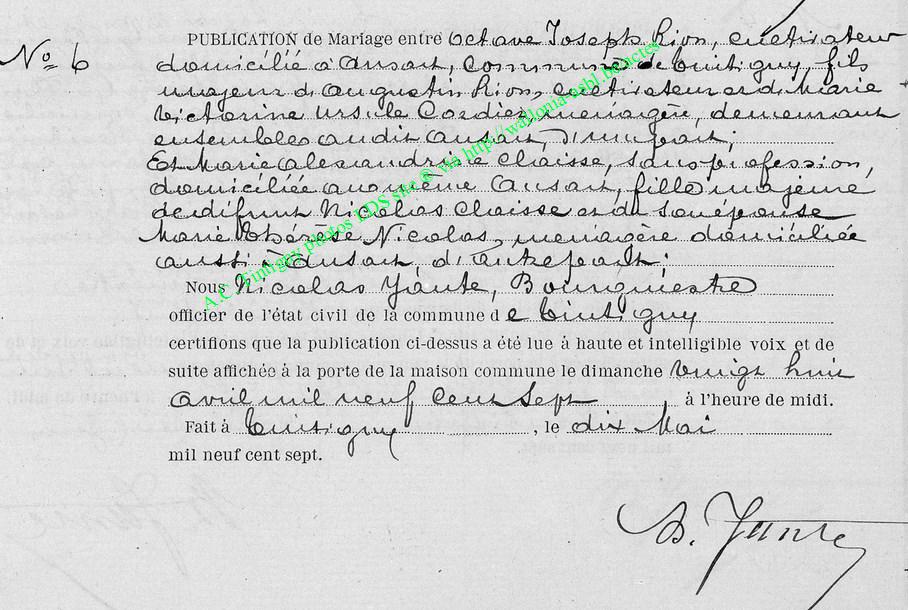 No 6
PUBLICATION de Mariage entre Octave Joseph Rion, cultivateur
domicilié à Ansart, commune de Tintigny, fils
majeur d'Augustin Rion, cultivateur et de Marie
Victorine Ursule Cordier, ménagère, demeurant
ensembles audit Ansart, d'une part;
Et Marie Alexandrine Claisse, sans profession
domiciliée au même Ansart, fille majeure
de défunt Nicolas Claisse et de son épouse
Marie Thérèse Nicolas, ménagère domiciliée
aussi à Ansart, d'autre part;
Nous Nicolas Yante, Bourgmestre
officier de l'état civil de la commune de Tintigny
certifions que la publication ci-dessus a été lue à haute et intelligible voix et de
suite affichée à la porte de la maison commune le dimanche vingt huit
avril mil neuf cent sept, à l'heure de midi.
Fait à Tintigny, le dix Mai
mil neuf cent sept.
Yante
A.C. Tintigny photos LDS site © via http://wallonia-asbl.be/actes